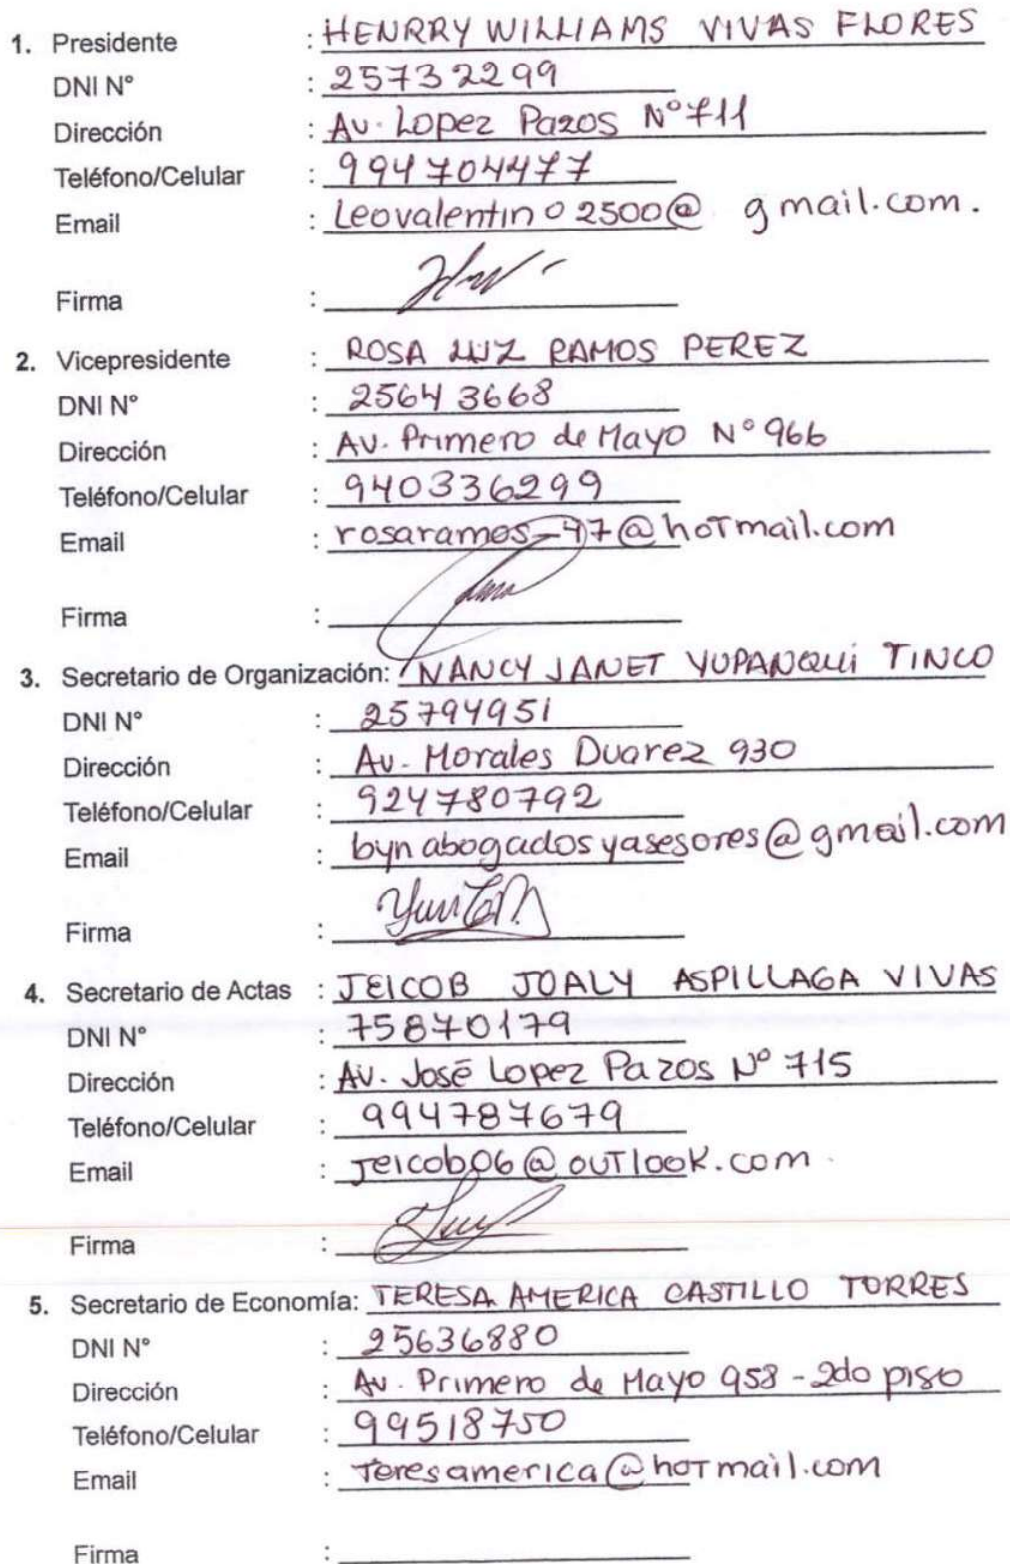 1. Presidente : HENRRY WILLIAMS VIVAS FLORES
DNI N° : 25732299
Dirección : Av. Lopez Pazos N° 711
Teléfono/Celular : 994704477
Email : Leovalentino2500@ gmail.com.
Firma :
2. Vicepresidente : ROSA LUZ RAMOS PEREZ
DNI N° : 25643668
Dirección : AV. Primero de Mayo N° 966
Teléfono/Celular : 940336299
Email : rosaramos_47@hotmail.com
Firma :
3. Secretario de Organización: NANCY JANET YUPANQUi TINCO
DNI N° : 25794951
Dirección : Av. Morales Duarez 930
Teléfono/Celular : 924780792
Email : bynabogadosyasesores@gmail.com
Firma :
4. Secretario de Actas : JEICOB JOALY ASPILLAGA VIVAS
DNI N° : 75870179
Dirección : AV. José Lopez Pazos N° 715
Teléfono/Celular : 994787679
Email : Jeicob06@outlook.com
Firma :
5. Secretario de Economía: TERESA AMERICA CASTILLO TORRES
DNI N° : 25636880
Dirección : Av. Primero de Mayo 958 - 2do piso
Teléfono/Celular : 99518750
Email : Teresamerica@hotmail.com
Firma :